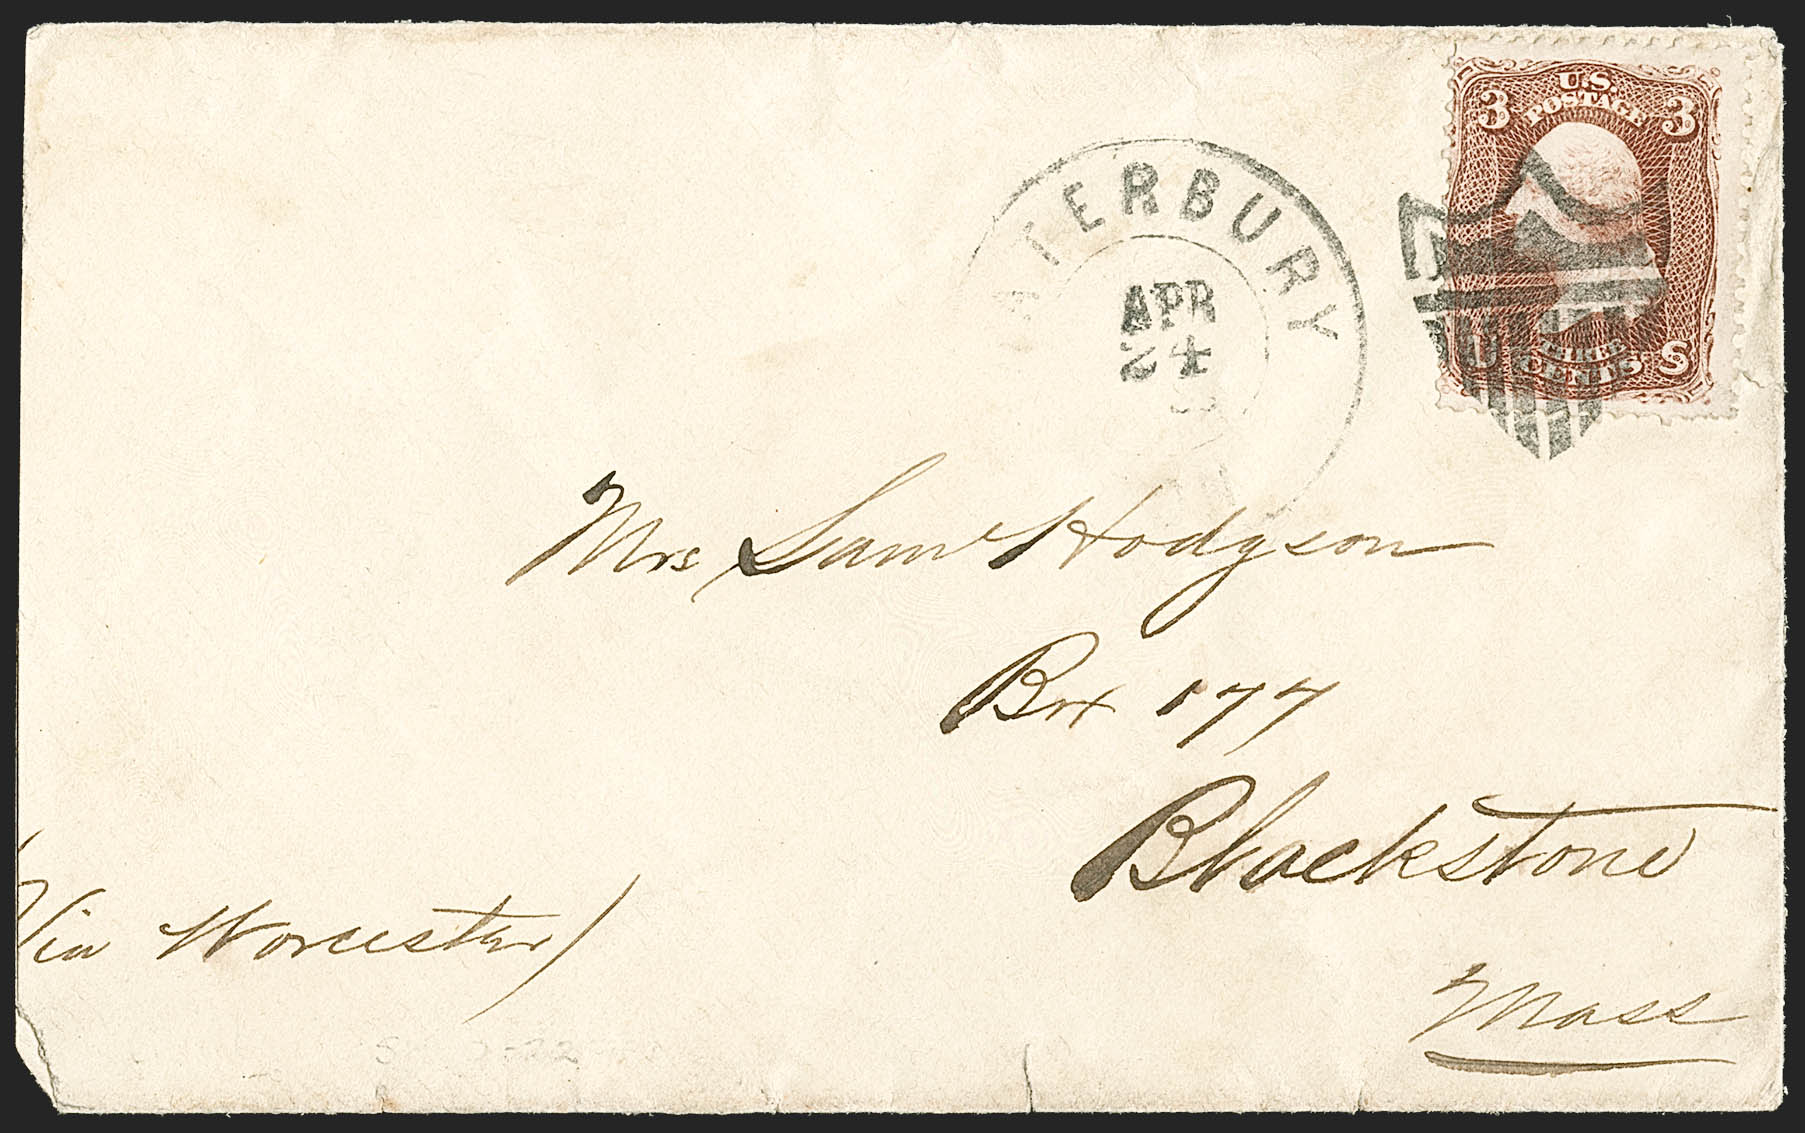 U.S.
POSTAGE
3 3
U S
THREE
CENTS
WATERBURY
APR
24
Mrs Saml Hodgson
Box 177
Blackstone
Mass
Via Worcester)